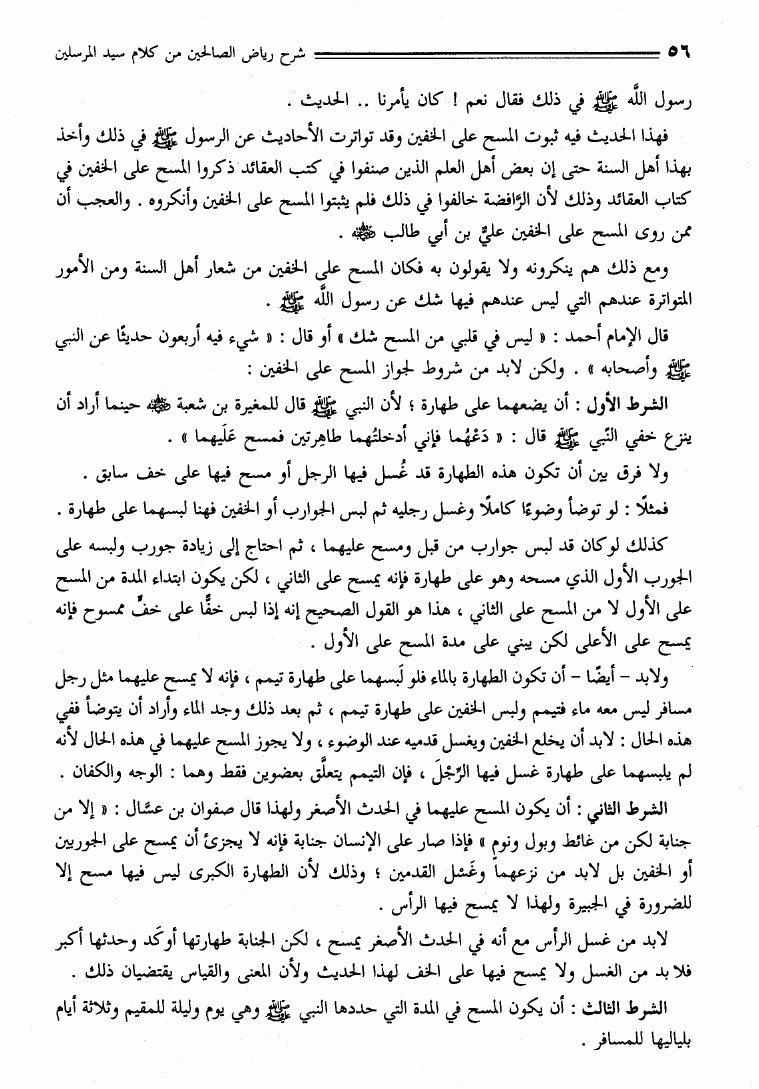 ٥٦ شرح رياض الصالحين من كلام سيد المرسلين
رسول اللَّه ﷺ في ذلك فقال نعم ! كان يأمرنا .. الحديث .
فهذا الحديث فيه ثبوت المسح على الخفين وقد تواترت الأحاديث عن الرسول ﷺ في ذلك وأخذ
بهذا أهل السنة حتى إن بعض أهل العلم الذين صنفوا في كتب العقائد ذكروا المسح على الخفين في
كتاب العقائد وذلك لأن الرَّافضة خالفوا في ذلك فلم يثبتوا المسح على الخفين وأنكروه . والعجب أن
ممن روى المسح على الخفين عليُّ بن أبي طالب رضي الله عنه .
ومع ذلك هم ينكرونه ولا يقولون به فكان المسح على الخفين من شعار أهل السنة ومن الأمور
المتواترة عندهم التي ليس عندهم فيها شك عن رسول اللَّه ﷺ .
قال الإمام أحمد : « ليس في قلبي من المسح شك » أو قال : « شيء فيه أربعون حديثًا عن النبي
ﷺ وأصحابه » . ولكن لابد من شروط لجواز المسح على الخفين :
الشرط الأول : أن يضعهما على طهارة ؛ لأن النبي ﷺ قال للمغيرة بن شعبة رضي الله عنه حينما أراد أن
ينزع خفي النَّبي ﷺ قال : « دَعْهُما فإني أدخلتُهما طاهِرتين فمسح عَلَيهما » .
ولا فرق بين أن تكون هذه الطهارة قد غُسل فيها الرجل أو مسح فيها على خف سابق .
فمثلًا : لو توضأ وضوءًا كاملًا وغسل رجليه ثم لبس الجوارب أو الخفين فهنا لبسهما على طهارة .
كذلك لو كان قد لبس جوارب من قبل ومسح عليهما ، ثم احتاج إلى زيادة جورب ولبسه على
الجورب الأول الذي مسحه وهو على طهارة فإنه يمسح على الثاني ، لكن يكون ابتداء المدة من المسح
على الأول لا من المسح على الثاني ، هذا هو القول الصحيح إنه إذا لبس خفًّا على خفٍّ ممسوح فإنه
يمسح على الأعلى لكن يبني على مدة المسح على الأول .
ولابد - أيضًا - أن تكون الطهارة بالماء فلو لَبسهما على طهارة تيمم ، فإنه لا يمسح عليهما مثل رجل
مسافر ليس معه ماء فتيمم ولبس الخفين على طهارة تيمم ، ثم بعد ذلك وجد الماء وأراد أن يتوضأ ففي
هذه الحال : لابد أن يخلع الخفين ويغسل قدميه عند الوضوء ، ولا يجوز المسح عليهما في هذه الحال لأنه
لم يلبسهما على طهارة غسل فيها الرِّجْلَ ، فإن التيمم يتعلَّق بعضوين فقط وهما : الوجه والكفان .
الشرط الثاني : أن يكون المسح عليهما في الحدث الأصغر ولهذا قال صفوان بن عسَّال : « إلا من
جنابة لكن من غائط وبول ونومٍ » فإذا صار على الإنسان جنابة فإنه لا يجزئ أن يمسح على الجوربين
أو الخفين بل لابد من نزعهما وغَسْل القدمين ؛ وذلك لأن الطهارة الكبرى ليس فيها مسح إلا
للضرورة في الجبيرة ولهذا لا يمسح فيها الرأس .
لابد من غسل الرأس مع أنه في الحدث الأصغر يمسح ، لكن الجنابة طهارتها أوكَد وحدثها أكبر
فلابد من الغسل ولا يمسح فيها على الخف لهذا الحديث ولأن المعنى والقياس يقتضيان ذلك .
الشرط الثالث : أن يكون المسح في المدة التي حددها النبي ﷺ وهي يوم وليلة للمقيم وثلاثة أيام
بلياليها للمسافر .